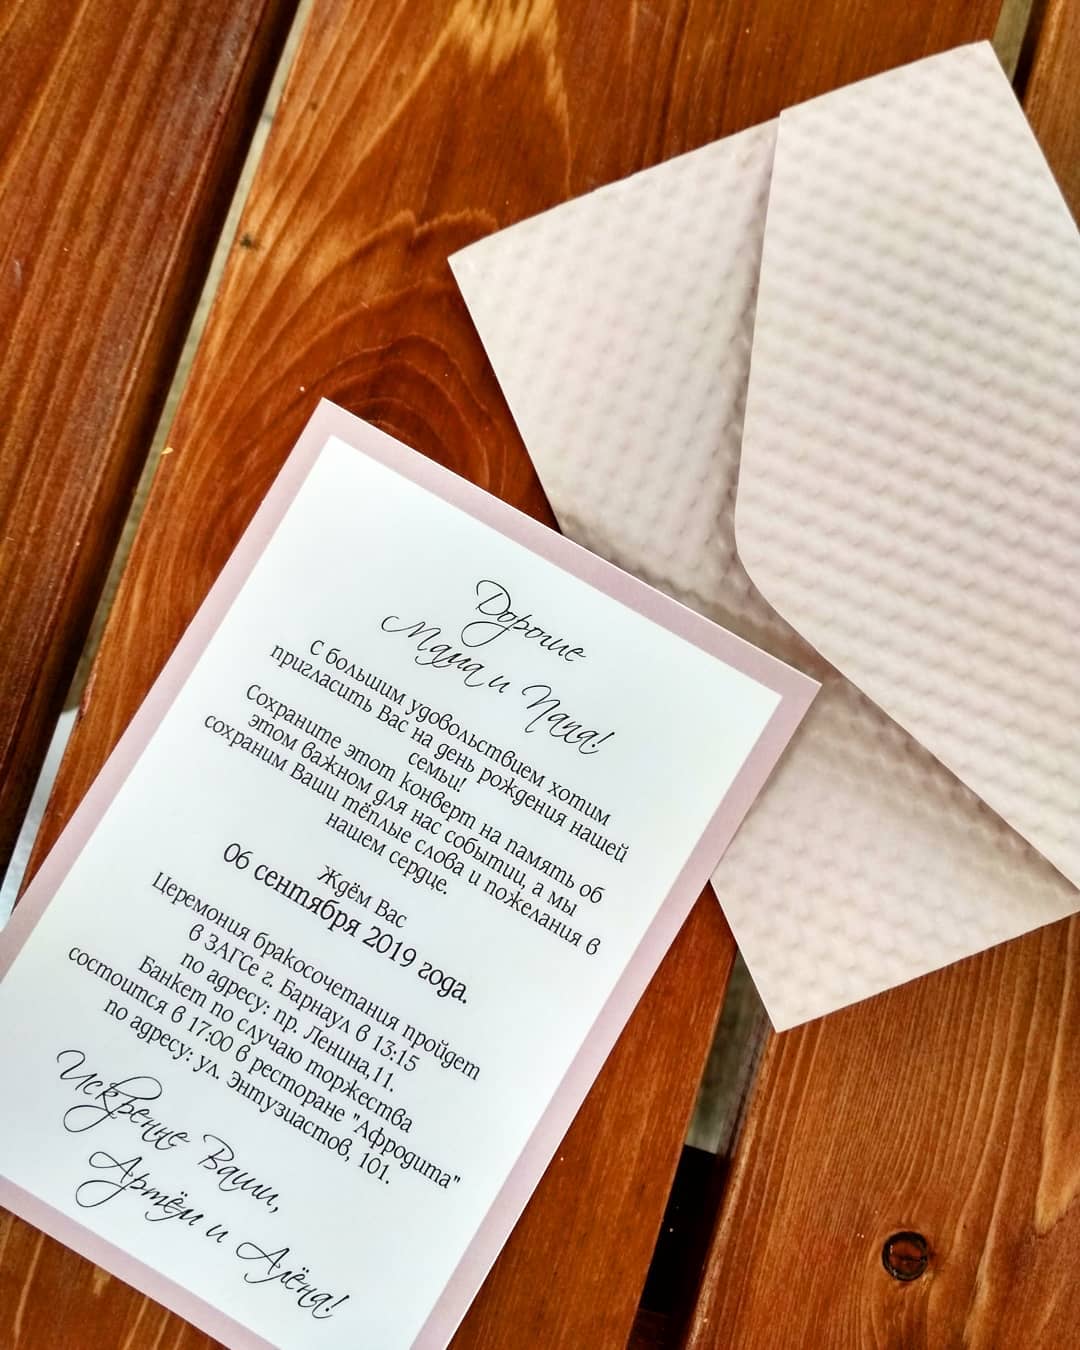 Дорогие
Мама и Папа!
С большим удовольствием хотим
пригласить Вас на день рождения нашей
семьи!
Сохраните этот конверт на память об
этом важном для нас событии, а мы
сохраним Ваши тёплые слова и пожелания в
нашем сердце.
Ждём Вас
06 сентября 2019 года.
Церемония бракосочетания пройдет
в ЗАГСе г. Барнаул в 13:15
по адресу: пр. Ленина,11.
Банкет по случаю торжества
состоится в 17:00 в ресторане "Афродита"
по адресу: ул. Энтузиастов, 101.
Искренне Ваши,
Артём и Алёна!